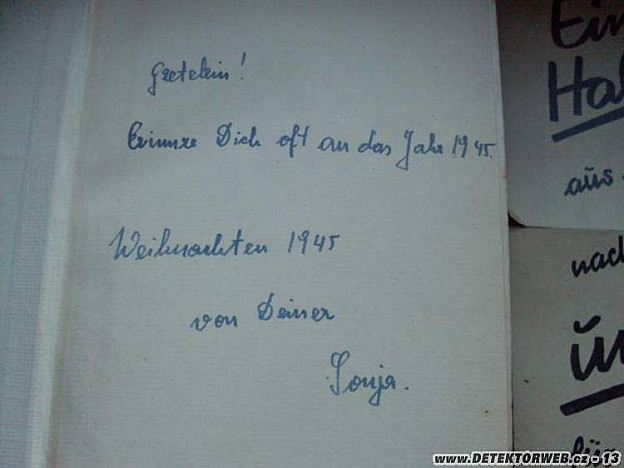 Gretelein!
Erinnre Dich oft an das Jahr 1945.
Weihnachten 1945
von Deiner
Sonja.
Ein
Hal
aus
nach
un
für
www.DETEKTORWEB.cz - 13